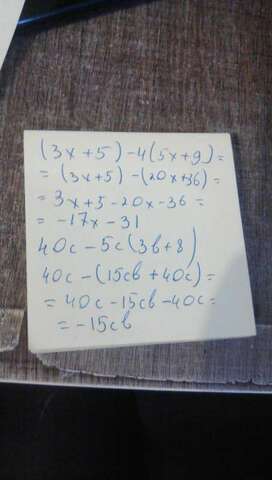 (3x+5)-4(5x+9)=
=(3x+5)-(20x+36)=
=3x+5-20x-36=
=-17x-31
40c-5c(3b+8)
40c-(15cb+40c)=
=40c-15cb-40c=
=-15cb